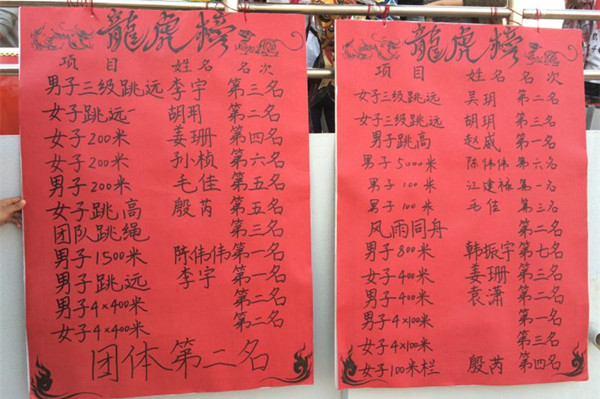 龍虎榜
项目 姓名 名次
男子三级跳远 李宇 第三名
女子跳远 胡玥 第二名
女子200米 姜珊 第四名
女子200米 孙桢 第六名
男子200米 毛佳 第五名
女子跳高 殷芮 第五名
团队跳绳 第三名
男子1500米 陈伟伟 第一名
男子跳远 李宇 第一名
男子4×400米 第二名
女子4×400米 第二名
团体第二名
龍虎榜
项目 姓名 名次
女子三级跳远 吴玥 第二名
女子三级跳远 胡玥 第三名
男子跳高 赵威 第一名
男子5000米 陈伟伟 第六名
男子100米 江建裕 第一名
男子100米 毛佳 第三名
风雨同舟 第二名
男子800米 韩振宇 第七名
女子400米 姜珊 第三名
女子400米 袁潇 第二名
男子4×100米 第一名
女子4×100米 第三名
女子100米栏 殷芮 第四名